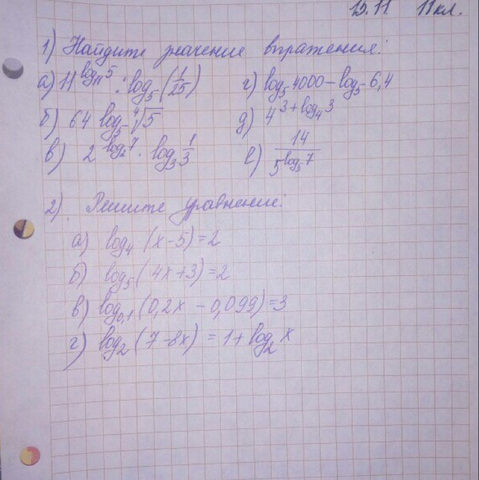 15.11 11 кл.
1) Найдите значение выражения:
а) 11^{log₁₁5} : log₅(1/25) г) log₅4000 − log₅6,4
б) 64 log₅⁴√5 д) 4^{3+log₄3}
в) 2^{log₂7} · log₃ 1/3 е) 14/5^{log₅7}
2). Решите уравнение:
а) log₄ (x−5)=2
б) log₅(4x+3)=2
в) log₀,₁(0,2x − 0,099)=3
г) log₂(7−8x) = 1+log₂x